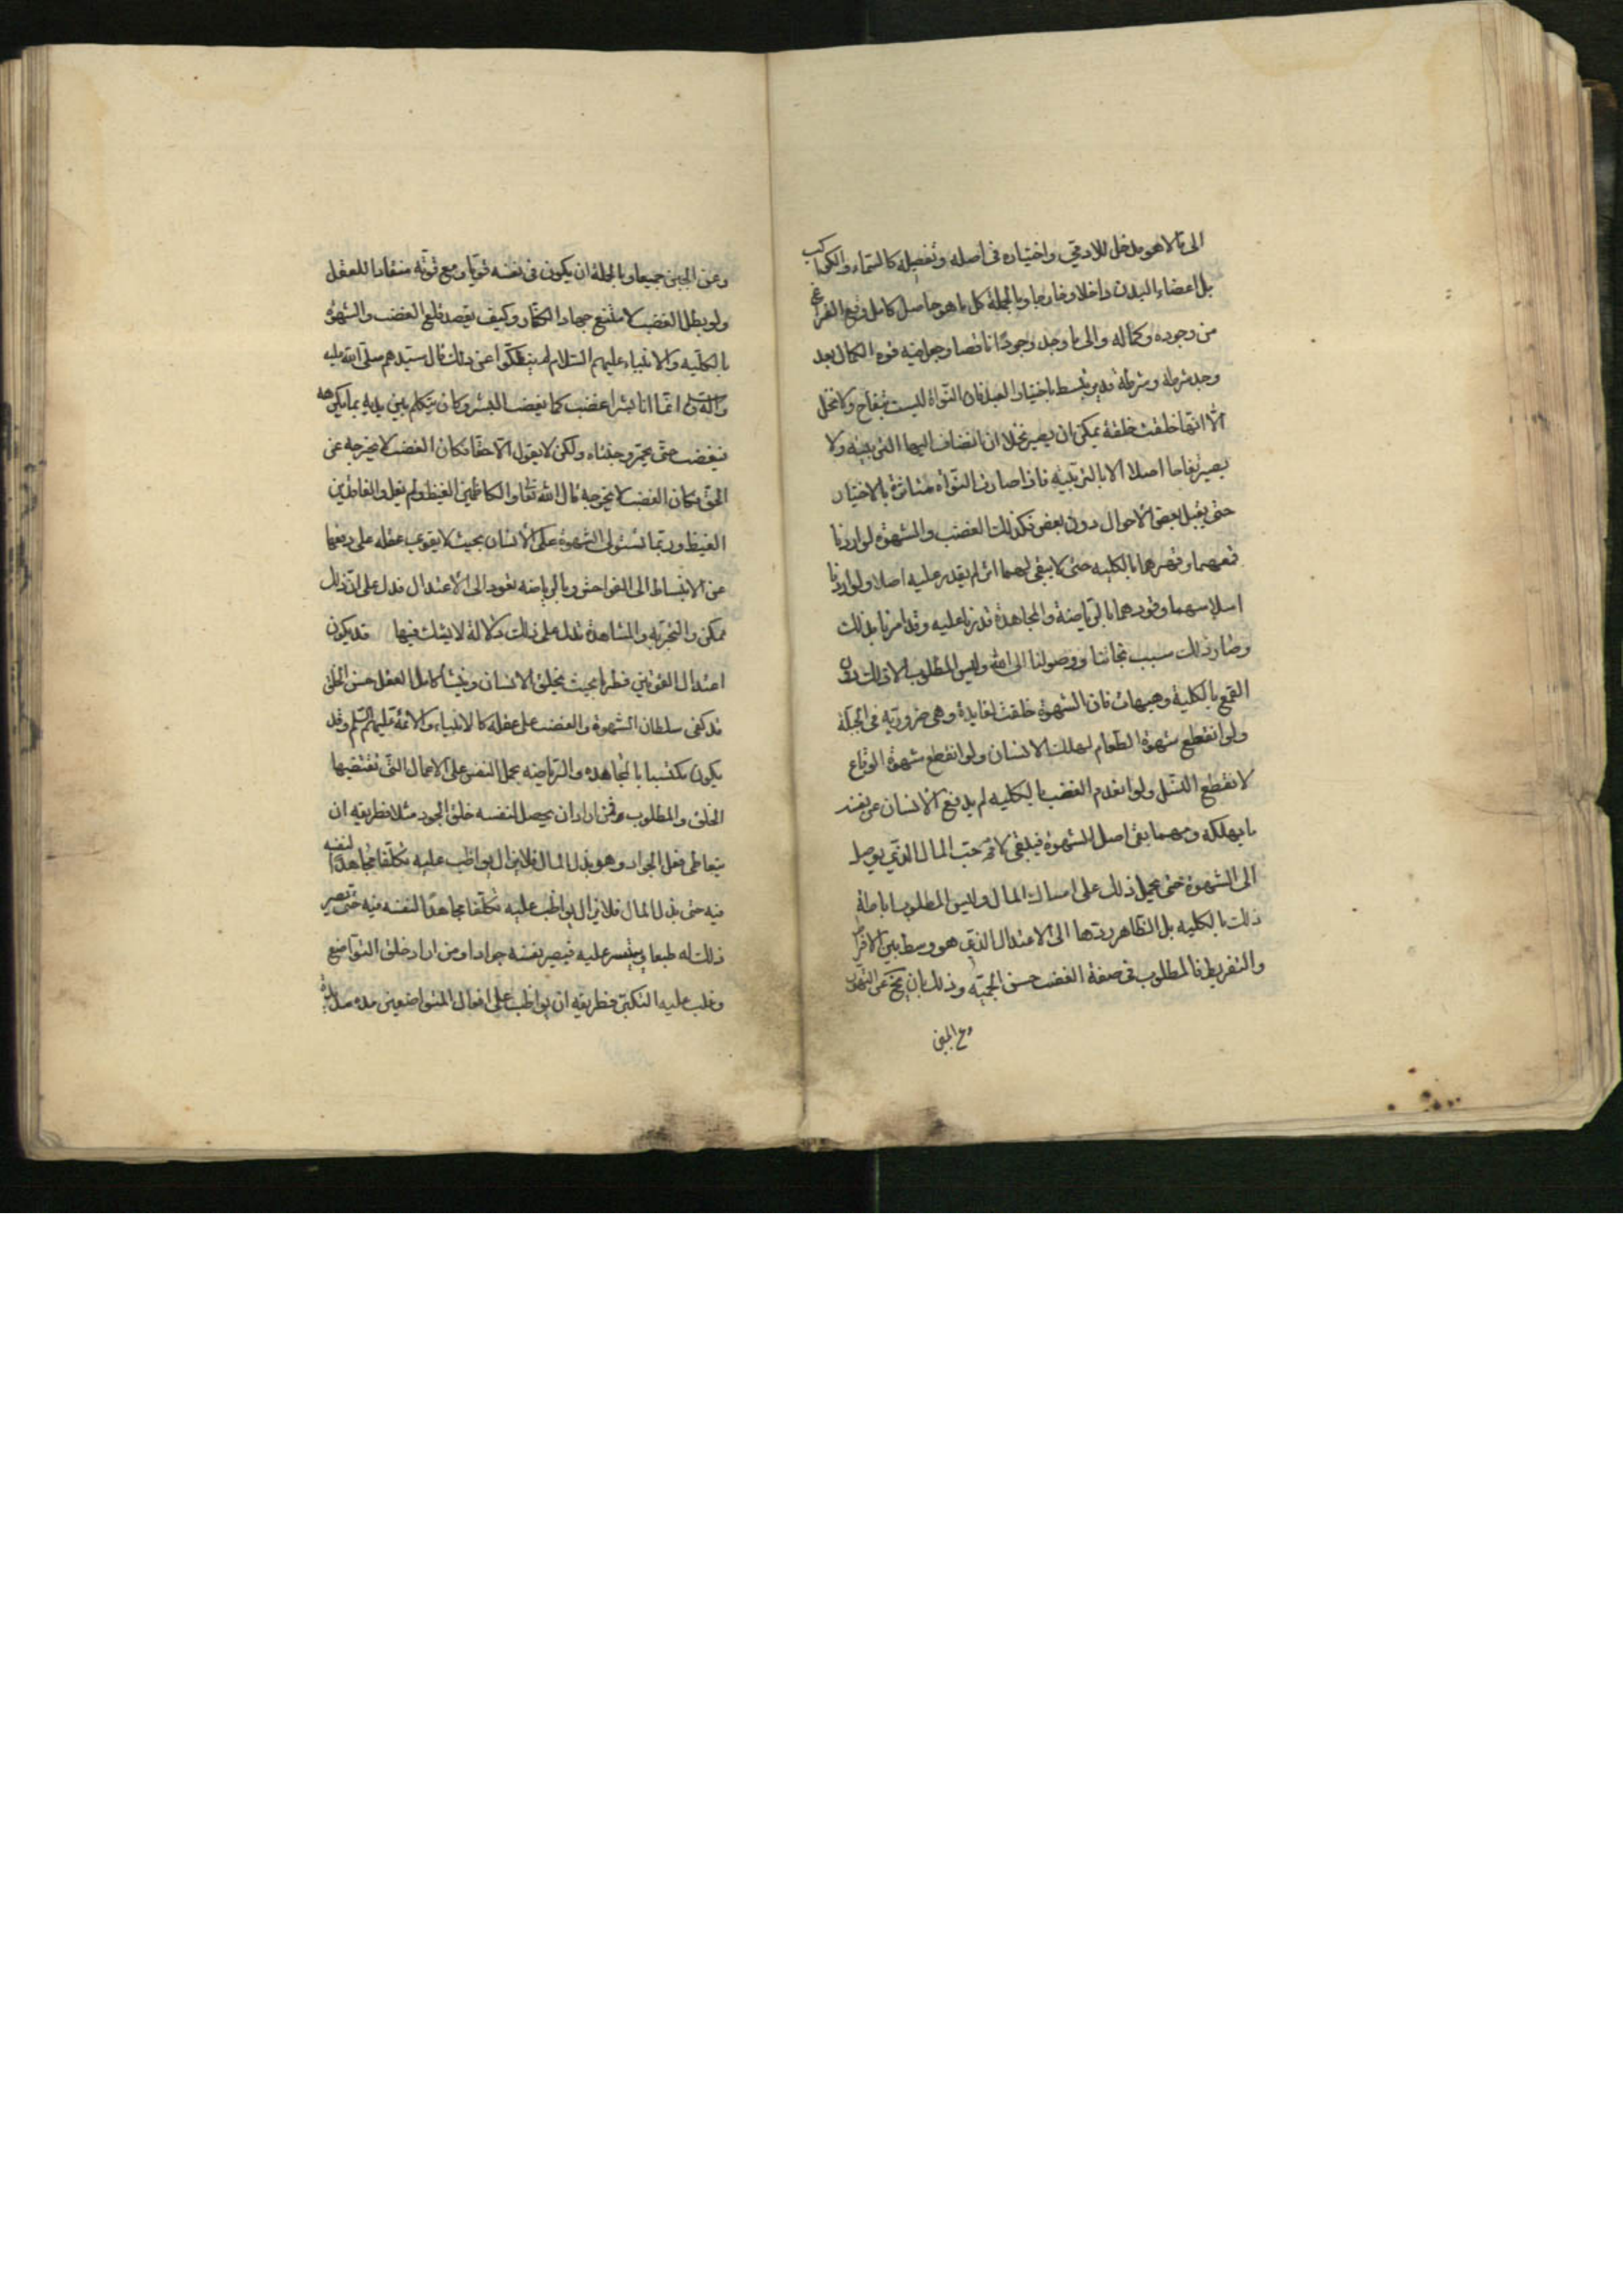 الى ما لا هو مدخل للادمي واختياره في اصله وتفصيله كالسماء والكواكب
بل اعضاء البدن داخلا وخارجا وبالجملة كل ما هو حاصل كامل وقع الفراغ
من وجوده وكماله والى ما وجد وجودًا ناقصا وجعل فيه قوة الكمال بعد
وجد شرطه وشرطه قد يرتبط باختيار العبد فان النواة ليست بتفاح ولا نخل
الّا انها خلقت خلقة يمكن ان يصير نخلا ان انضاف اليها التربية ولا
يصير تفاحا اصلا الا بالتربية فاذا صارت النواة متأثرة بالاختيار
حتى يقبل بعض الاحوال دون بعض فكذلك الغضب والشهوة لو اردنا
قمعهما وقهرهما بالكلية حتى لا يبقى لهما اثر لم يقدر عليه اصلا ولو اردنا
اسلاسهما وقودهما بالرياضة والمجاهدة قدرنا عليه وقد امرنا بذلك
وصار ذلك سبب نجاتنا ووصولنا الى الله وليس المطلوب الا ذلك دون
القمع بالكلية وهيهات فان الشهوة خلقت لفايدة وهي ضرورية في الجبلة
ولو انقطع شهوة الطعام لهلك الانسان ولو انقطع شهوة الوقاع
لانقطع النسل ولو انعدم الغضب بالكلية لم يدفع الانسان عن نفسه
ما يهلكه ومهما بقى اصل الشهوة فيبقى لا محة حب المال الذي يوصل
الى الشهوة حتى يحمل ذلك على امساك المال وليس المطلوب اماطة
ذلك بالكلية بل الظاهر ردها الى الاعتدال الذي هو وسط بين الافراط
والتفريط فالمطلوب في صفة الغضب حسن الحمية وذلك بان يخ عن التهور
وعن الجبن
وعن الجبن جميعا وبالجملة ان يكون في نفسه قويا ومع قوته منقادا للعقل
ولو بطل الغضب لامتنع جهاد الكفار وكيف يقصد قلع الغضب والشهوة
بالكلية والانبياء عليهم السلام لم ينفكوا عن ذلك قال سيدهم صلى الله عليه
وآله وسلم انما انا بشر اغضب كما يغضب البشر وكان يتكلم بين يديه بما يكرهه
فيغضب حتى يحمر وجنتاه ولكن لا يقول الا حقا فكان الغضب لا يخرجه عن
الحق فكان الغضب لا يخرجه قال الله تعا والكاظمين الغيظ ولم يقل والفاقدين
الغيظ وربما تستولى الشهوة على الانسان بحيث لا يقوى عقله على دفعها
عن الانبساط الى الفواحش وبالرياضة تعود الى الاعتدال فدل على ان ذلك
ممكن والتجربة والمشاهدة تدل على ذلك دلالة لا يشك فيها قد يكون
اعتدال القوتين فطريا بحيث يخلق الانسان وينشأ كامل العقل حسن الخلق
قد كفى سلطان الشهوة والغضب على عقله كالانبياء والائمة عليهم السلم وقد
يكون مكتسبا بالمجاهده والرياضه يحمل النفس على الاعمال التي تقتضيها
الخلق والمطلوب فمن اراد ان يحصل لنفسه خلق الجود مثلا فطريقه ان
يتعاطى فعل الجواد وهو بذل المال فلا يزال يواظب عليه تكلفا مجاهدا لنفسه
فيه حتى بذل المال فلا يزال يواظب عليه تكلفا مجاهدا لنفسه فيه حتى تصير
ذلك له طبعا ويتيسر عليه فيصير نفسه جوادا ومن اراد خلق التواضع
وغلب عليه التكبر فطريقه ان يواظب على افعال المتواضعين مدة مديدة